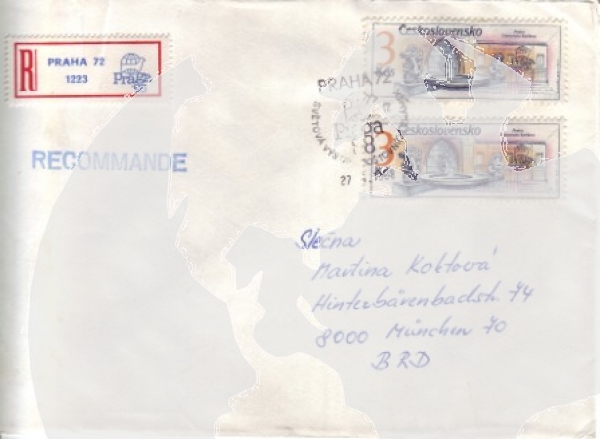 R PRAHA 72
1223 Praga
RECOMMANDE
3 Československo
PRAHA 72
Československo
3
27
Slečna
Martina Koktová
Hinterbärenbadstr. 74
8000 München 70
BRD